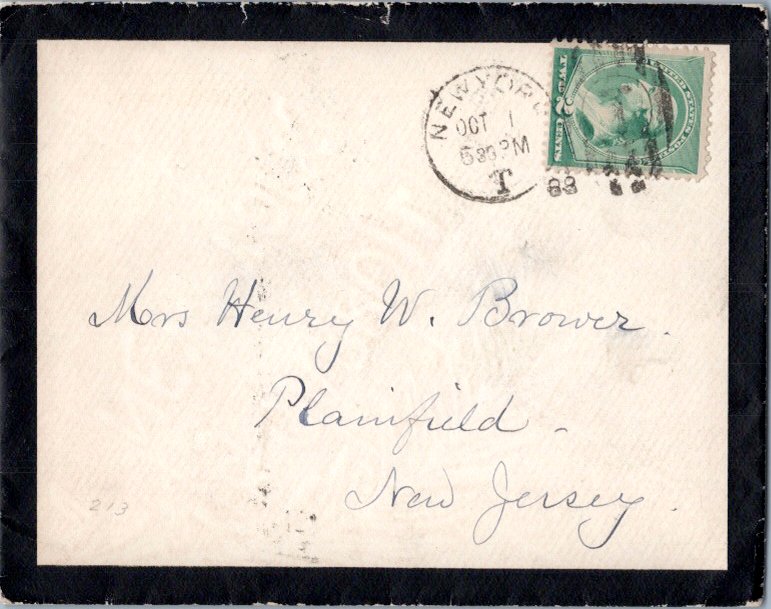 NEW YORK
OCT 1
530 PM
T
88
TWO 2 CENTS
UNITED STATES POSTAGE
Mrs Henry W. Brower.
Plainfield -
New Jersey.
213